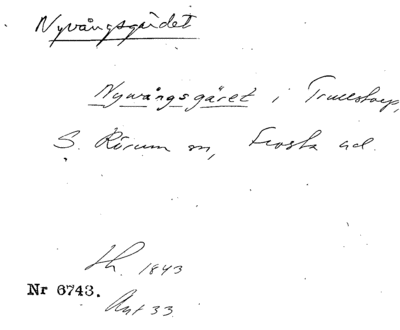 Nyvångsgärdet
Nyvångsgäret i Trullstorp,
S. Rörum sn, Frosta hd.
Lh. 1843
Nr 6743.
Akt 33